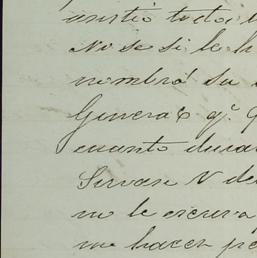 asistió todos
No se si le h
nombró su
General qe. q
cuanto dura
Sirvase V de
no le escriva
me hacen pe